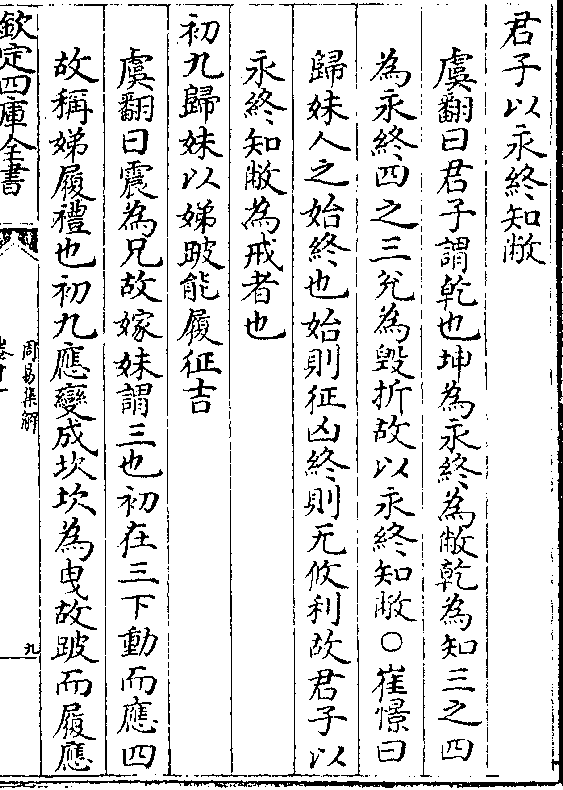 君子以永終知敝
虞翻曰君子謂乾也坤為永終為敝乾為知三之四
為永終四之三兌為毀折故以永終知敝○崔憬曰
歸妹人之始終也始則征凶終則无攸利故君子以
永終知敝為戒者也
初九歸妹以娣跛能履征吉
虞翻曰震為兄故嫁妹謂三也初在三下動而應四
故稱娣履禮也初九應變成坎坎為曳故跛而履應
欽定四庫全書
周易集解
九